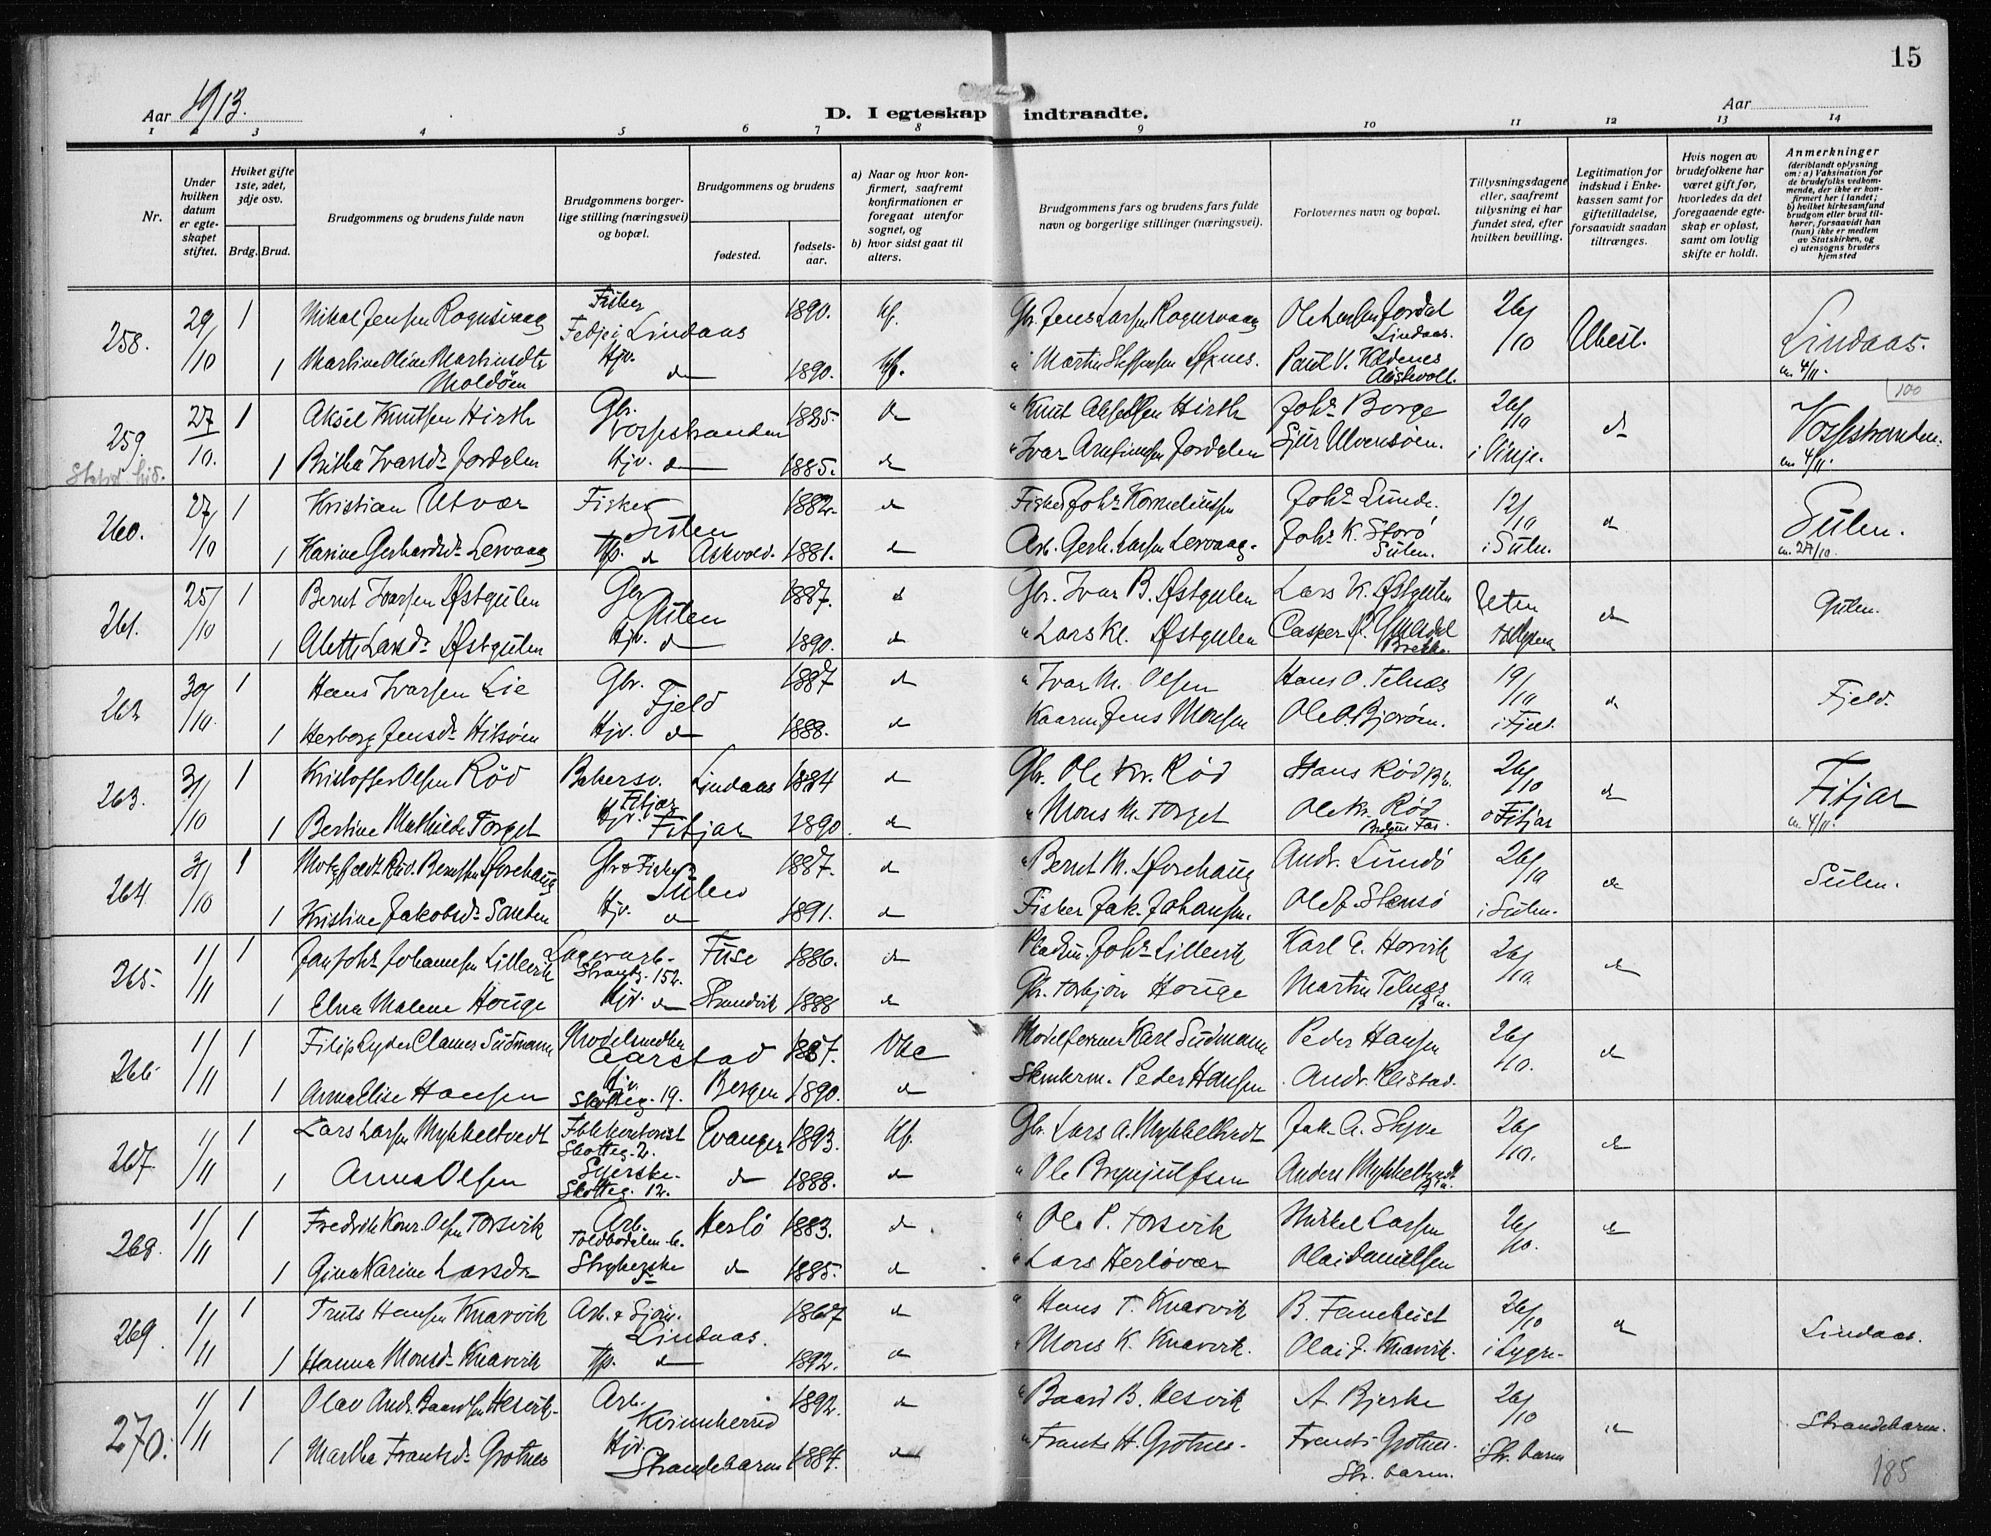 15
Aar 1913.
D. I egteskap indtraadte.
Aar
1 2 3 4 5 6 7 8 9 10 11 12 13 14
Nr.
Under hvilken datum er egteskapet stiftet.
Hviket gifte 1ste, 2det, 3dje osv.
Brdg. Brud.
Brudgommens og brudens fulde navn
Brudgommens borgerlige stilling (næringsvei) og bopæl.
Brudgommens og brudens
fødested.
fødselsaar.
a) Naar og hvor konfirmert, saafremt konfirmationen er foregaat utenfor sognet, og
b) hvor sidst gaat til alters.
Brudgommens fars og brudens fars fulde navn og borgerlige stillinger (næringsvei).
Forlovernes navn og bopæl.
Tillysningsdagene eller, saafremt tillysning ei har fundet sted, efter hvilken bevilling.
Legitimation for indskud i Enkekassen samt for giftetilladelse, forsaavidt saadan tiltrænges.
Hvis nogen av brudefolkene har været gift før, hvorledes da det foregaaende egteskap er opløst, samt om lovlig skifte er holdt.
Anmerkninger (deriblandt oplysning om: a) Vaksination for de brudefolks vedkommende, der ikke er konfirmert her i landet; b) hvilket kirkesamfund brudgom eller brud tilhører, forsaavidt han (hun) ikke er medlem av Statskirken, og c) utensogns bruders hjemsted
258. 29/10 1 Mikal Jensen Rognsvaag Fisker Fedje i Lindaas 1890. Kf. Gbr. Jens Larsen Rognsvaag Ole Larsen Jordal Lindaas. 26/10 Ubest. Lindaas.
1 Martine Oline Martinsdtr Moldöen Hjv. do 1890. Kf. " Martin Steffensen Øxnes. Paul V. Holdenes m. 4/11.
100
259. 27/10. 1 Aksel Knutsen Hirth Gbr. Vossestranden 1885. do " Knut Hirth Johs Borge 26/10 do Vossestranden.
1 Britha Ivarsdr Jordalen Hjv. do 1885. do " Ivar Arnfinnsen Jordalen Sjur Ulvensöen. i Vinje. m. 4/11.
260. 27/10 1 Kristian Utvær Fisker Sulen 1882. do Fisker Johs Korneliussen Johs Lunde 12/10 do Sulen.
1 Karine Gerhardsdr Lervaag Tp. do Askvold. 1881. do Arb. Gerh. Larsen Lervaag. Johs K. Storö Sulen. i Sulen. m. 27/10.
261. 25/10 1 Bernt Ivarsen Østgulen Gbr Gulen 1887. do Gbr. Ivar B. Østgulen Lars K. Østgulen do Gulen.
1 Alette Larsdr Østgulen Hjv. do 1890. do " Lars Kl. Østgulen Casper Brekke.
262 30/10. 1 Hans Ivarsen Lie Gbr. Fjeld 1887 do " Ivar M. Olsen Hans O. Telnæs 19/10 do Fjeld.
1 Herborg Jensdr Hilsöen Hjv. do 1888. do Jens Monsen Ole O. Bjorøen. i Fjeld.
263. 31/10 1 Kristoffer Olsen Röd Bakersv. Fitjar Lindaas 1884 do Gbr. Ole Kr. Röd Hans Röd 26/10 do Fitjar
1 Bertine Mathilde Torget Hjv. Fitjar 1890. do " Mons M. Torget Ole Kr. Röd Brudgoms Far. Fitjar m. 4/11.
264. 31/10 1 Berntsen Øvrehaug Gbr & Fisker Sulen 1887. do " Bernt M. Øvrehaug Andr. Lundö 26/10 do Sulen.
1 Kristine Jakobsdr Sanden Hjv. do 1891. do Fisker Jak. Johansen. Ole J. Stensö i Sulen.
265. 1/11 1 Jan Johs Johannesen Lillevik Lagerarb. Strandg. 152. Fuse 1886. do Pladsm. Johs Lillevik Karl E. Horvik 26/10. do
1 Elna Malene Houge Hjv. do Strandvik 1888 do Gbr. Torbjörn Houge Martin Telnæs
266. 1/11 1 Filip Ryder Clamer Südmann Modelsnedker Aarstad 1887. Modelformer Karl Südmann Peder Hansen 26/10. do
1 Anna Elise Hansen Hjv. Skotteg. 19. Bergen 1890. do Peder Hansen. Andr. Reistad.
267. 1/11 1 Lars Larsen Mykkeltvedt Skotteg. 2. Evanger 1893. Kf. Gbr. Lars A. Mykkeltvedt Jak. A. Skjve 26/10. do
1 Anna Olsen Syerske. Skotteg. 12. do 1888. do " Ole Brynjulfsen Anders Mykkeltvedt
268. 1/11 1 Fredrik Konr. Olsen Torsvik Arb. Toldbodalm. 6. Herlö 1883. do " Ole P. Torsvik Mikkel Larsen 26/10. do
1 Gina Karine Larsdr Strykerske do do 1885. do " Lars Herløvær Olai Danielsen
269. 1/11 1 Truls Hansen Knarvik Arb. & Sjöm. Lindaas. 1867 do " Hans T. Knarvik B. Famekvist 26/10 do Lindaas.
1 Hanna Monsdr Knarvik Tp. do 1892. do " Mons K. Knarvik. Olai J. Knarvik. i Lygre.
270. 1/11 1 Olav Andr. Baardsen Hesvik. Arb. Kvinnherred 1892. do " Baard B. Hesvik A. Bjerke 26/10 do Strandebarm.
1 Martha Frantsdr Grotnes Hjv. Strandebarm 1884. do " Frants H. Grotnes. Frants Grotnes. Str. barm. i Str. barm
185